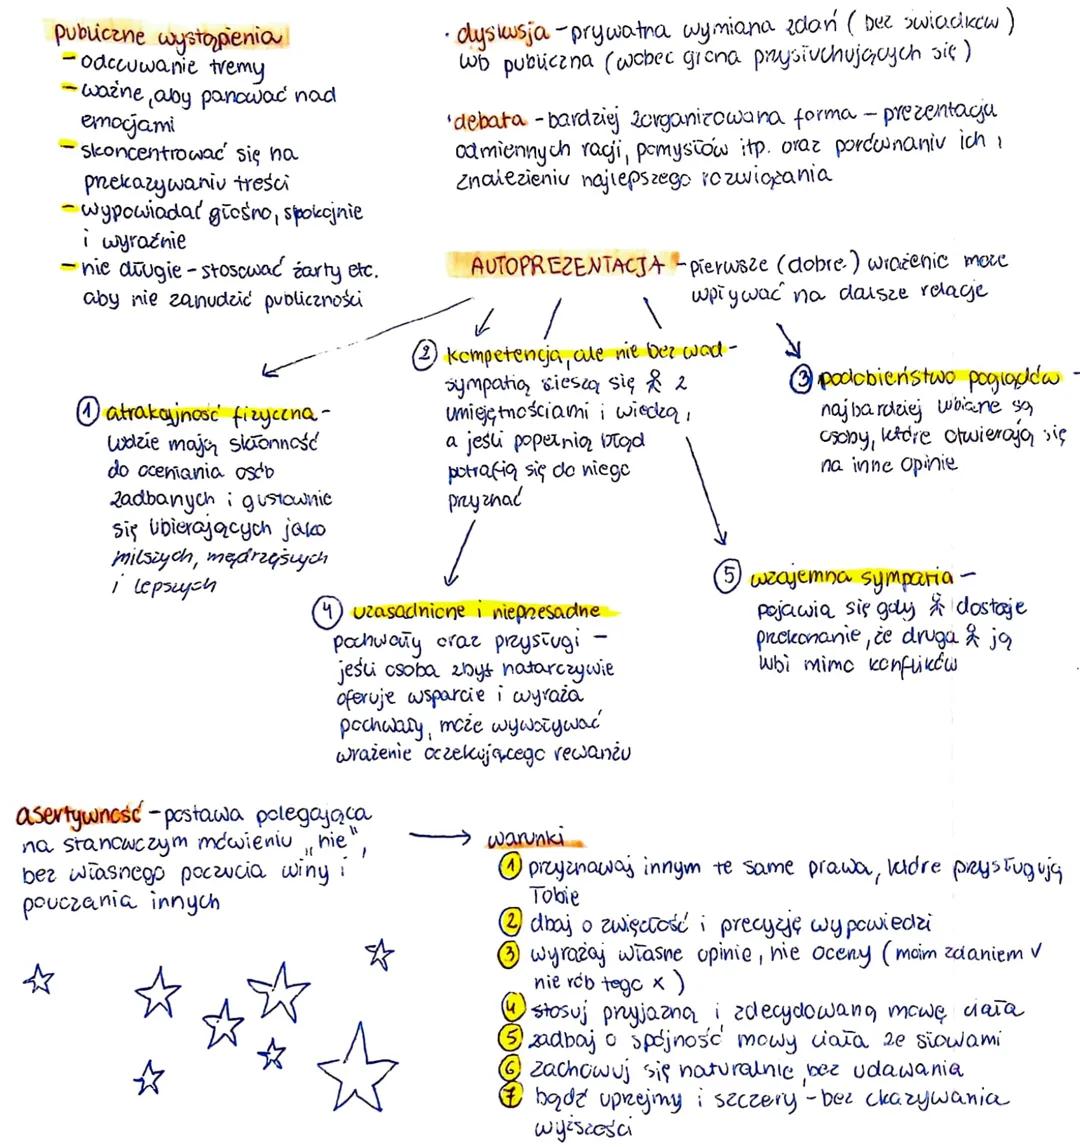 publiczne wystąpienia
- odczuwanie tremy
- ważne, aby panować nad
emocjami
- skoncentrować się na
przekazywaniu treści
- wypowiadać głośno, spokojnie
i wyraźnie
- nie długie - stosować żarty etc.
aby nie zanudzić publiczności
· dyskusja - prywatna wymiana zdań (bez świadków)
lub publiczna (wobec grona przysłuchujących się)
· debata - bardziej zorganizowana forma - prezentacja
odmiennych racji, pomysłów itp. oraz porównaniu ich i
znalezieniu najlepszego rozwiązania
AUTOPREZENTACJA - pierwsze (dobre) wrażenie może
wpływać na dalsze relacje
① atrakcyjność fizyczna -
ludzie mają skłonność
do oceniania osób
zadbanych i gustownie
się ubierających jako
milszych, mądrzejszych
i lepszych
② kompetencja, ale nie bez wad -
sympatią cieszą się z
umiejętnościami i wiedzą,
a jeśli popełnią błąd
potrafią się do niego
przyznać
③ podobieństwo poglądów -
najbardziej lubiane są
osoby, które otwierają się
na inne opinie
④ uzasadnione i nieprzesadne
pochwały oraz przysługi -
jeśli osoba zbyt natarczywie
oferuje wsparcie i wyraża
pochwały, może wywoływać
wrażenie oczekującego rewanżu
⑤ wzajemna sympatia -
pojawia się gdy dostaje
przekonanie, że druga ją
lubi mimo konfliktów
asertywność - postawa polegająca
na stanowczym mówieniu „nie",
bez własnego poczucia winy i
pouczania innych
warunki
① przyznawaj innym te same prawa, które przysługują
Tobie
② dbaj o zwięzłość i precyzję wypowiedzi
③ wyrażaj własne opinie, nie oceny (moim zdaniem v
nie rób tego x)
④ stosuj przyjazną i zdecydowaną mowę ciała
⑤ zadbaj o spójność mowy ciała ze słowami
⑥ zachowuj się naturalnie, bez udawania
⑦ bądź uprzejmy i szczery - bez okazywania
wyższości